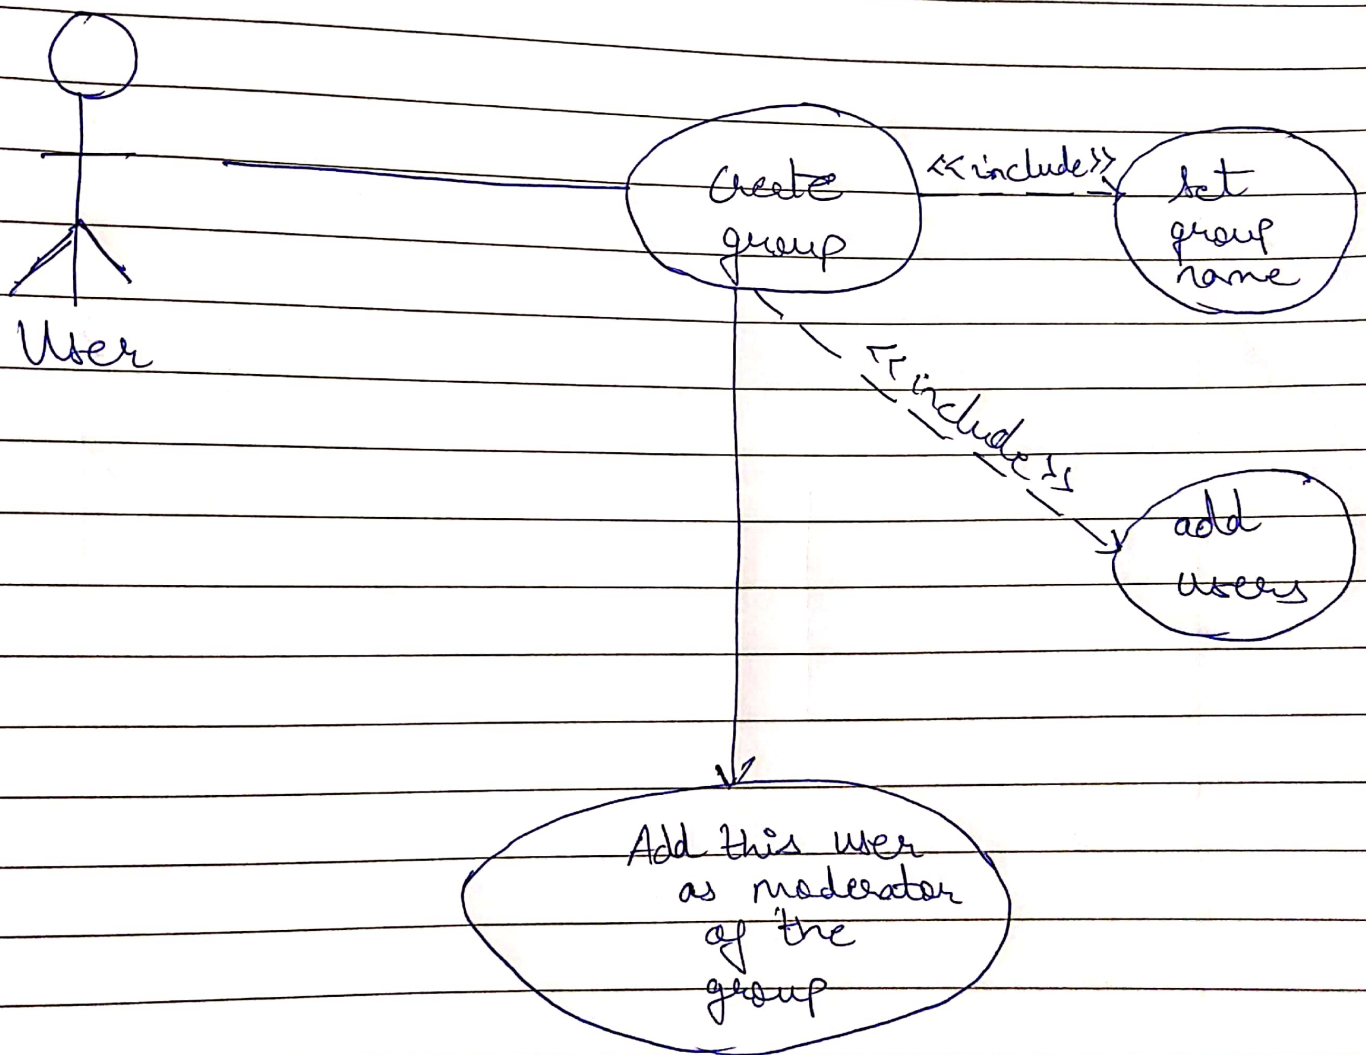 create
group
<<include>>
set
group
name
User
<<include>>
add
users
Add this user
as moderator
of the
group